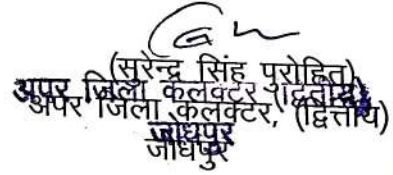 (सुरेन्द्र सिंह पुरोहित)
अपर जिला कलक्टर (द्वितीय)
अपर जिला कलक्टर, (द्वित्तीय)
जोधपुर
जोधपुर